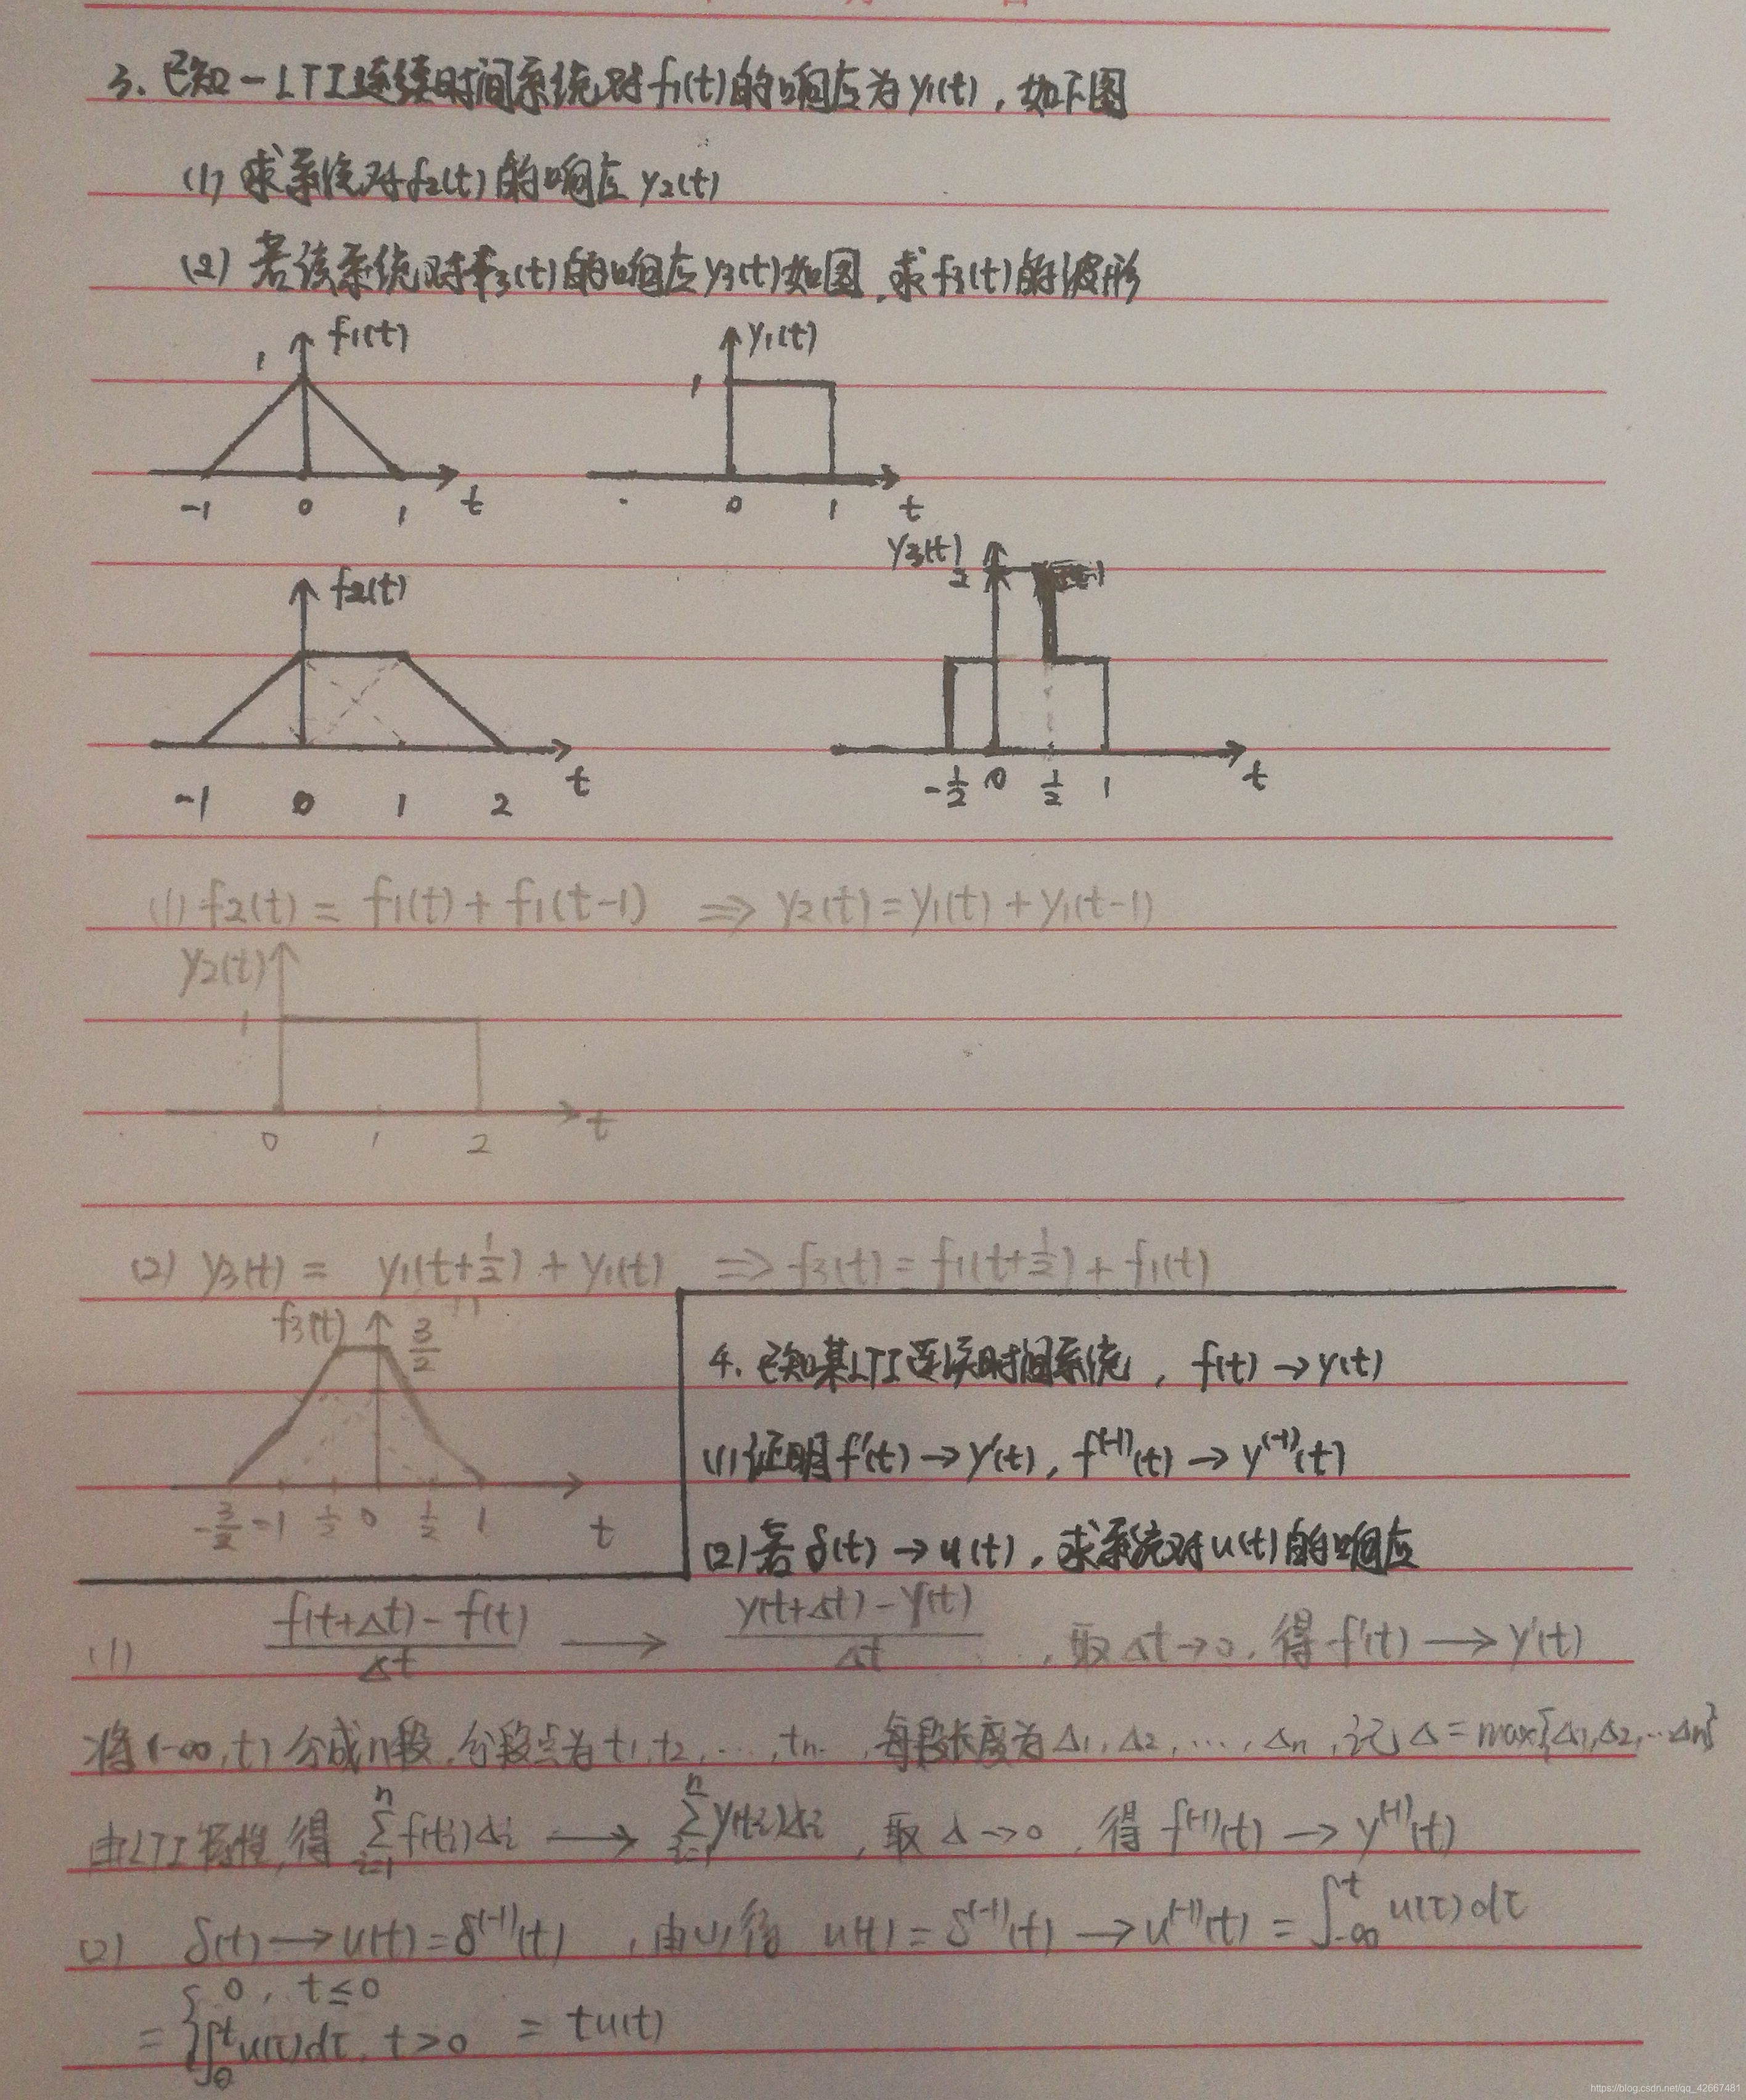 3. 已知一LTI连续时间系统对f₁(t)的响应为y₁(t)，如下图
(1) 求系统对f₂(t)的响应y₂(t)
(2) 若该系统对f₃(t)的响应y₃(t)如图，求f₃(t)的波形
f₁(t)
1
-1 0 1 t
y₁(t)
1
0 1 t
f₂(t)
-1 0 1 2 t
y₃(t)
2
-1/2 0 1/2 1 t
(1) f₂(t) = f₁(t) + f₁(t-1) ⇒ y₂(t) = y₁(t) + y₁(t-1)
y₂(t)
1
0 1 2 t
(2) y₃(t) = y₁(t+1/2) + y₁(t) ⇒ f₃(t) = f₁(t+1/2) + f₁(t)
f₃(t) 3/2
-3/2 -1 1/2 0 1/2 1 t
4. 已知某LTI连续时间系统，f(t) → y(t)
(1) 证明f'(t) → y'(t), f⁽⁻¹⁾(t) → y⁽⁻¹⁾(t)
(2) 若δ(t) → u(t)，求系统对u(t)的响应
(1) (f(t+Δt) - f(t))/Δt → (y(t+Δt) - y(t))/Δt ，取Δt→0，得f'(t) → y'(t)
将(-∞, t)分成n段，分段点为t₁, t₂, …, tₙ，每段长度为Δ₁, Δ₂, …, Δₙ，记Δ = max{Δ₁, Δ₂, … Δₙ}
由LTI特性，得 ∑ᵢ₌₁ⁿ f(tᵢ)Δᵢ → ∑ᵢ₌₁ⁿ y(tᵢ)Δᵢ ，取Δ→0，得f⁽⁻¹⁾(t) → y⁽⁻¹⁾(t)
(2) δ(t) → u(t) = δ⁽⁻¹⁾(t) ，由(1)得 u(t) = δ⁽⁻¹⁾(t) → u⁽⁻¹⁾(t) = ∫₋∞ᵗ u(τ)dτ
= { 0, t ≤ 0
∫₀ᵗ u(τ)dτ, t > 0 = tu(t)
https://blog.csdn.net/qq_42667481